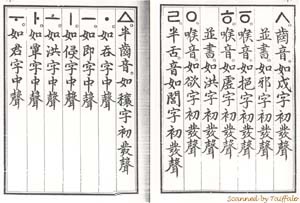 ㅅ齒音如戌字初發聲
並書如邪字初發聲
ㆆ喉音如挹字初發聲
ㅎ喉音如虛字初發聲
並書如洪字初發聲
ㅇ喉音如欲字初發聲
ㄹ半舌音如閭字初發聲
ㅿ半齒音如穰字初發聲
ㆍ如呑字中聲
ㅡ如即字中聲
ㅣ如侵字中聲
ㅗ如洪字中聲
ㅏ如覃字中聲
ㅜ如君字中聲
Scanned by Taiffalo